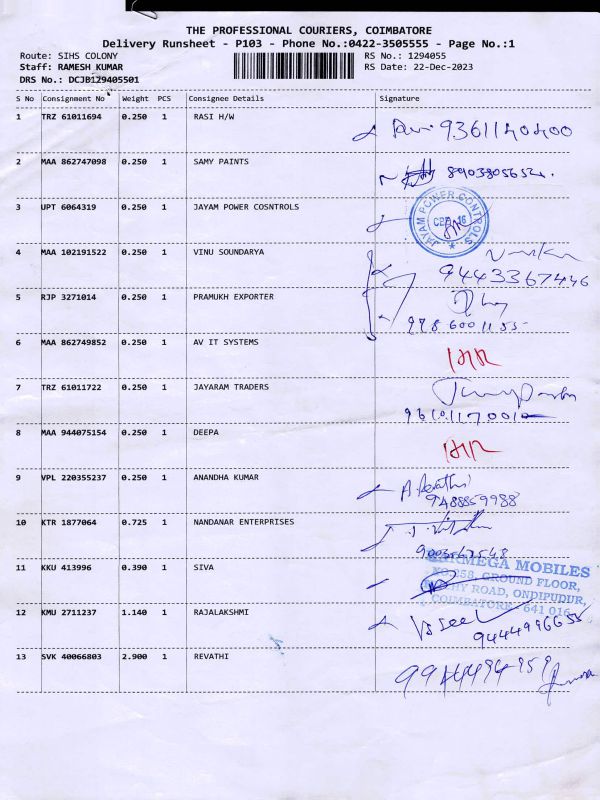 THE PROFESSIONAL COURIERS, COIMBATORE
Delivery Runsheet - P103 - Phone No.:0422-3505555 - Page No.:1
Route: SIHS COLONY
Staff: RAMESH KUMAR
DRS No.: DCJB129405501
RS No.: 1294055
RS Date: 22-Dec-2023
S No Consignment No Weight PCS Consignee Details Signature
1 TRZ 61011694 0.250 1 RASI H/W 9361140400
2 MAA 862747098 0.250 1 SAMY PAINTS
3 UPT 6064319 0.250 1 JAYAM POWER COSNTROLS
JAYAM POWER CONTROLS
4 MAA 102191522 0.250 1 VINU SOUNDARYA
9443367446
5 RJP 3271014 0.250 1 PRAMUKH EXPORTER
6 MAA 862749852 0.250 1 AV IT SYSTEMS
7 TRZ 61011722 0.250 1 JAYARAM TRADERS
8 MAA 944075154 0.250 1 DEEPA
9 VPL 220355237 0.250 1 ANANDHA KUMAR
9488859988
10 KTR 1877064 0.725 1 NANDANAR ENTERPRISES
9003567548
11 KKU 413996 0.390 1 SIVA
MOBILES
258, GROUND FLOOR,
ROAD, ONDIPUDUR,
COIMBATORE - 641 016
12 KMU 2711237 1.140 1 RAJALAKSHMI
9444996655
13 SVK 40066803 2.900 1 REVATHI